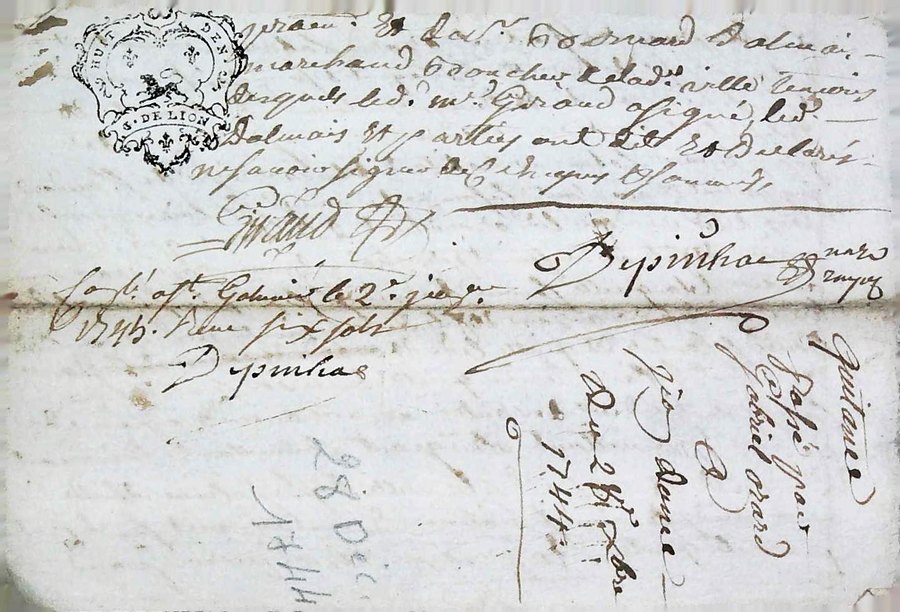 HUIT DEN
DE LION
Dalmai-
marchand Boucher de lad. ville temoins
lesquels led. mr. Giraud a signé, led.
Dalmais et parties ont dit et declaré
ne savoir signer de ce enquis et sommés
Giraud
Depinhac
st. Galmier le 2e.
1745. six sols
Depinhac
Quitance
Passé par
Gabriel orard
A
Du 28e Xbre
1744
28 Dec
1744